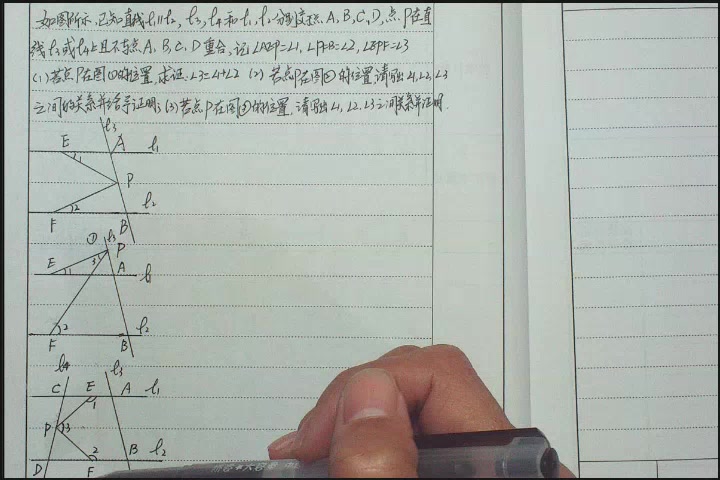 如图所示,已知直线l₁∥l₂,l₃,l₄和l₁,l₂分别交于A,B,C,D,点P在直
线l₃或l₄上且不与点A,B,C,D重合,记∠AEP=∠1,∠PFB=∠2,∠EPF=∠3
(1)若点P在图①的位置,求证:∠3=∠1+∠2 (2)若点P在图②的位置,请写出∠1,∠2,∠3
之间的关系并给予证明;(3)若点P在图③的位置,请写出∠1,∠2,∠3之间关系并证明.
l₃
E A l₁
1
P
2 l₂
F B
① l₃
P
E 3 A l₁
1
2 l₂
F B
l₄ l₃
C E A l₁
1
P 3
2 B l₂
D F